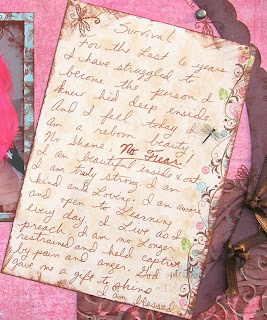 Survival
For the last 6 years
I have struggled to
become the person I
knew hid deep inside.
And I feel today I
Am a reborn beauty.
No Shame, No Fear!
I am beautiful inside & out
I am truly strong, I am
kind and Loving, I am aware
and open to Learning
every day. I Live as I
preach, I am no Longer
restrained and held captive
by pain and anger, God
gave me a gift to shine
I am blessed